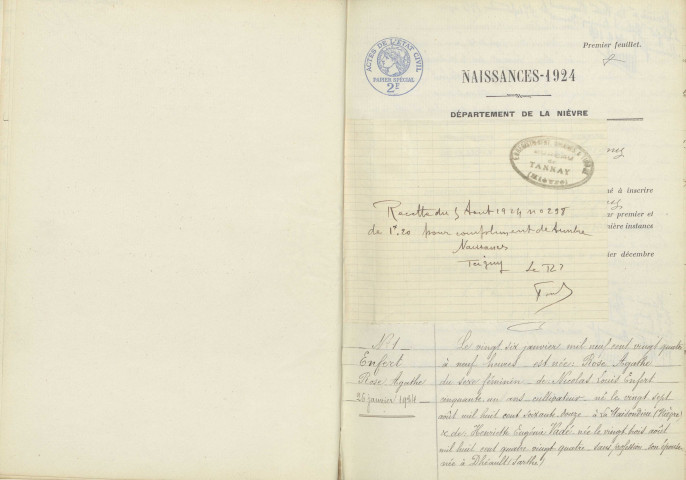 Premier feuillet.
ACTES DE L'ÉTAT CIVIL
PAPIER SPÉCIAL
2F
NAISSANCES-1924
DÉPARTEMENT DE LA NIÈVRE
TANNAY
(NIÈVRE)
é à inscrire
premier et
instance
er décembre
Recette du 5 Aout 1924 n° 298
de 1f20 pour complément de timbre
Naissances
Teigny Le R
N° 1
Enfert
Rose Agathe
26 janvier 1924
Le vingt six janvier mil neuf cent vingt quatre
à neuf heures est née Rose Agathe
du sexe féminin de Nicolas Louis Enfert
cinquante un ans cultivateur né le vingt sept
août mil huit cent soixante douze à la (Nièvre)
& de Henriette Eugénie Vadé née le vingt trois août
mil huit cent quatre vingt quatre sans profession son épouse
née à (Sarthe)